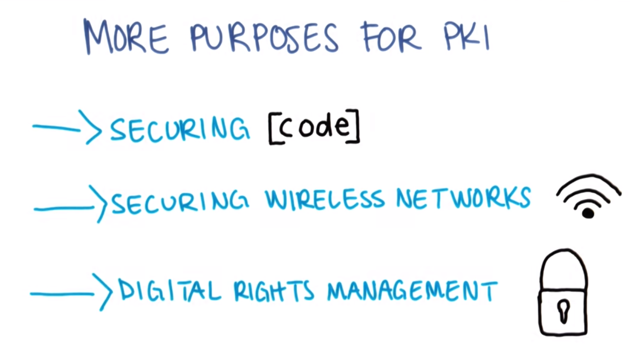 MORE PURPOSES FOR PKI
SECURING [code]
SECURING WIRELESS NETWORKS
DIGITAL RIGHTS MANAGEMENT